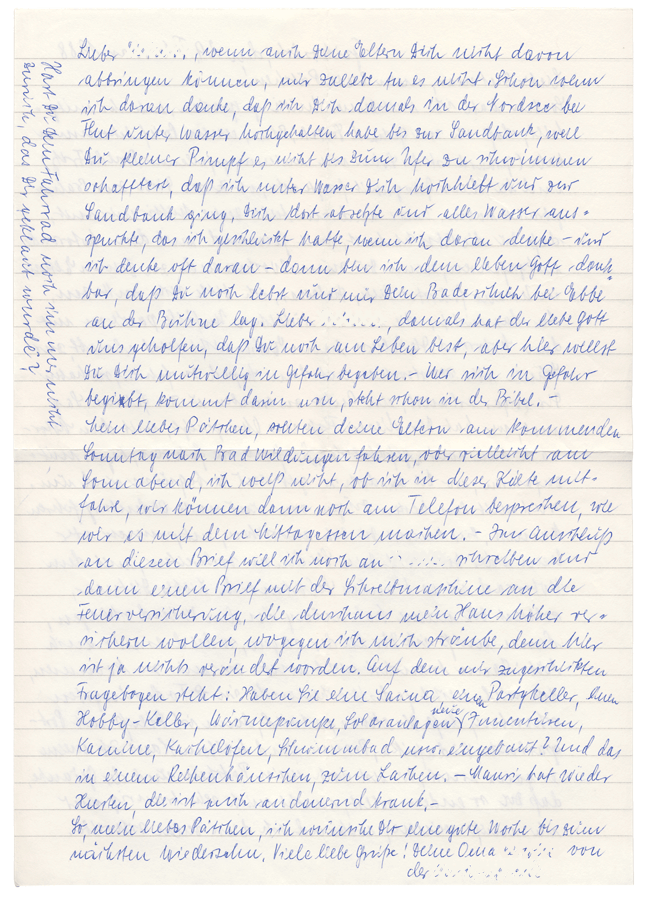 Lieber ......., wenn auch Deine Eltern Dich nicht davon
abbringen können, mir zuliebe tu es nicht. Schon wenn
ich daran denke, daß ich Dich damals in der Nordsee bei
Flut unter Wasser hochgehalten habe bis zur Sandbank, weil
Du kleiner Pimpf es nicht bis zum Ufer zu schwimmen
schafftest, daß ich unter Wasser Dich hochhielt und zur
Sandbank ging, Dich dort absetzte und alles Wasser aus-
spuckte, das ich geschluckt hatte, wenn ich daran denke – und
ich denke oft daran – dann bin ich dem lieben Gott dank-
bar, daß Du noch lebst und mir Dein Badeschuh bei Ebbe
an der Buhne lag. Lieber ......., damals hat der liebe Gott
uns geholfen, daß Du noch am Leben bist, aber hier willst
Du Dich mutwillig in Gefahr begeben. – Wer sich in Gefahr
begibt, kommt darin um, steht schon in der Bibel. –
Mein liebes Pätchen, sollten deine Eltern am kommenden
Sonntag nach Bad Wildungen fahren, oder vielleicht am
Sonnabend, ich weiß nicht, ob ich in dieser Kälte mit-
fahre, wir können dann noch am Telefon besprechen, wie
wir es mit dem Mittagessen machen. – Im Anschluß
an diesen Brief will ich noch an ....... schreiben und
dann einen Brief mit der Schreibmaschine an die
Feuerversicherung, die durchaus mein Haus höher ver-
sichern wollen, wogegen ich mich sträube, denn hier
ist ja nichts verändert worden. Auf dem mir zugeschickten
Fragebogen steht: Haben Sie eine Sauna, einen Partykeller, einen
Hobby-Keller, Wärmepumpe, Solaranlagen, neue Innentüren,
Kamine, Kachelöfen, Schwimmbad usw. eingebaut? Und das
in einem Reihenhäuschen, zum Lachen. – Mausi hat wieder
Husten, die ist auch andauernd krank. –
So, mein liebes Pätchen, ich wünsche Dir eine gute Woche bis zum
nächsten Wiedersehn. Viele liebe Grüße! Deine Oma von
der
Hast Du dein Fahrrad noch immer nicht
zurück, das Dir geklaut wurde?